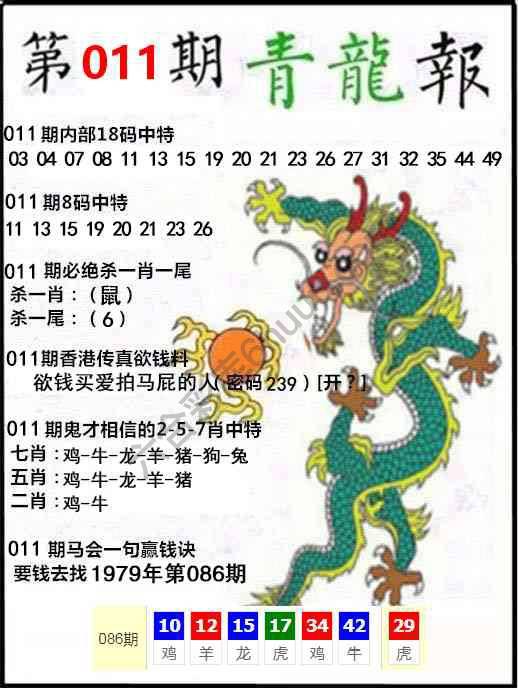 第011期青龍報
011期内部18码中特
03 04 07 08 11 13 15 19 20 21 23 26 27 31 32 35 44 49
011期8码中特
11 13 15 19 20 21 23 26
011期必绝杀一肖一尾
杀一肖：（鼠）
杀一尾：（6）
011期香港传真欲钱料
欲钱买爱拍马屁的人(密码239）[开？]
011期鬼才相信的2-5-7肖中特
七肖：鸡-牛-龙-羊-猪-狗-兔
五肖：鸡-牛-龙-羊-猪
二肖：鸡-牛
011期马会一句赢钱诀
要钱去找1979年第086期
086期 10 12 15 17 34 42 29
鸡 羊 龙 虎 鸡 牛 虎